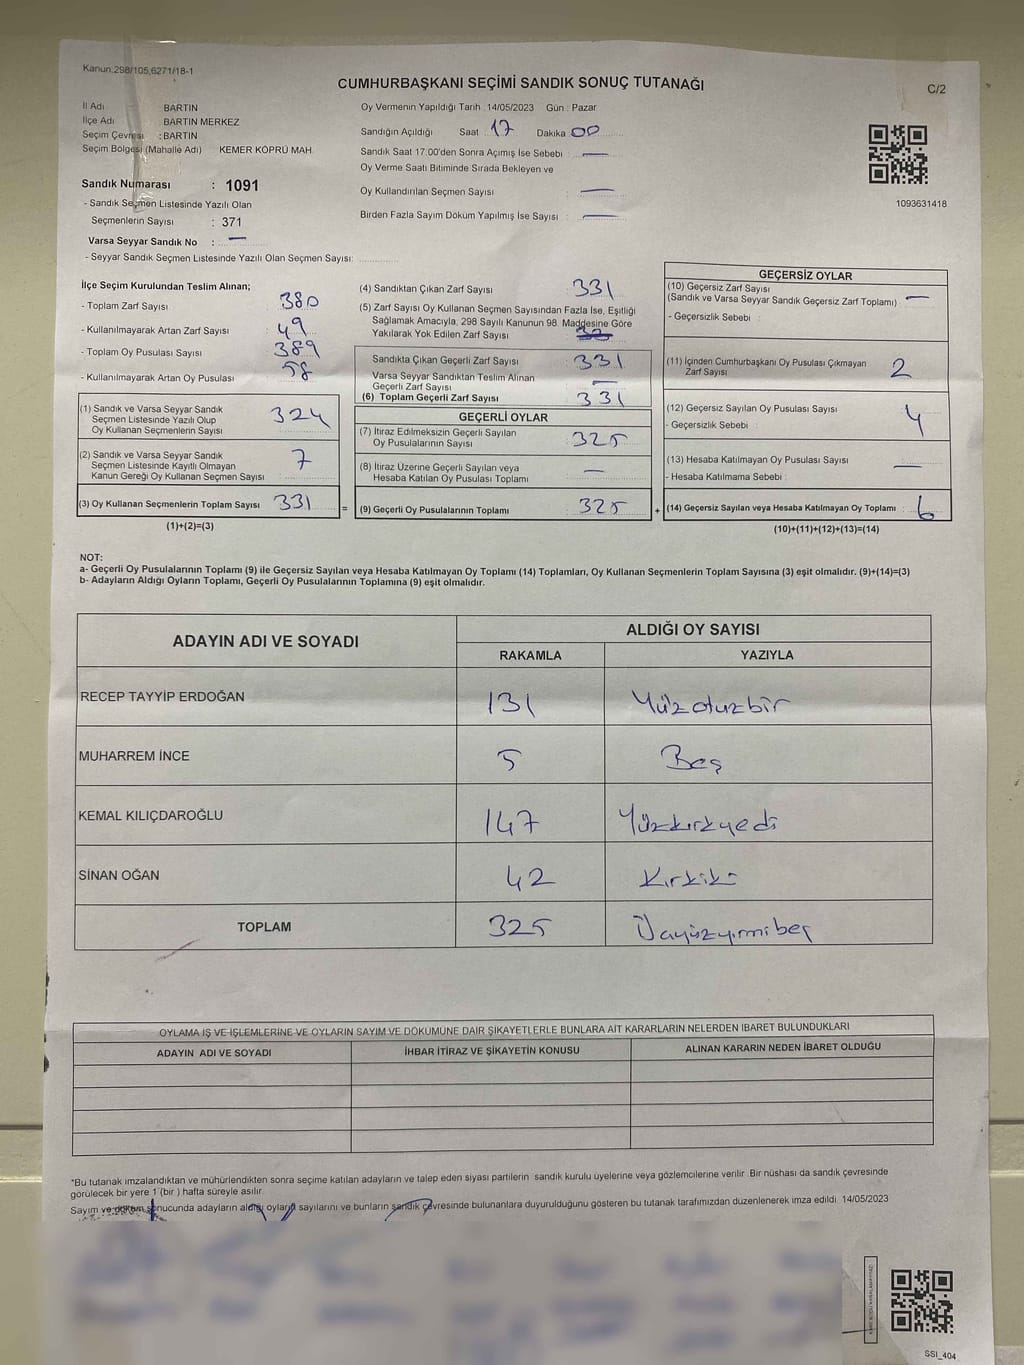 Kanun:298/105;6271/18-1
CUMHURBAŞKANI SEÇİMİ SANDIK SONUÇ TUTANAĞI
C/2
İl Adı BARTIN
İlçe Adı BARTIN MERKEZ
Seçim Çevresi :BARTIN
Seçim Bölgesi (Mahalle Adı) KEMER KÖPRÜ MAH.
Oy Vermenin Yapıldığı Tarih :14/05/2023 Gün : Pazar
Sandığın Açıldığı Saat 17 Dakika 00
Sandık Saat 17.00'den Sonra Açımış İse Sebebi : —
Oy Verme Saati Bitiminde Sırada Bekleyen ve
Oy Kullandırılan Seçmen Sayısı —
Birden Fazla Sayım Döküm Yapılmış İse Sayısı : —
1093631418
Sandık Numarası : 1091
- Sandık Seçmen Listesinde Yazılı Olan
Seçmenlerin Sayısı : 371
Varsa Seyyar Sandık No : —
- Seyyar Sandık Seçmen Listesinde Yazılı Olan Seçmen Sayısı:
İlçe Seçim Kurulundan Teslim Alınan;
- Toplam Zarf Sayısı 380
- Kullanılmayarak Artan Zarf Sayısı 49
- Toplam Oy Pusulası Sayısı 389
- Kullanılmayarak Artan Oy Pusulası 58
(1) Sandık ve Varsa Seyyar Sandık
Seçmen Listesinde Yazılı Olup
Oy Kullanan Seçmenlerin Sayısı 324
(2) Sandık ve Varsa Seyyar Sandık
Seçmen Listesinde Kayıtlı Olmayan
Kanun Gereği Oy Kullanan Seçmen Sayısı 7
(3) Oy Kullanan Seçmenlerin Toplam Sayısı 331 =
(1)+(2)=(3)
(4) Sandıktan Çıkan Zarf Sayısı 331
(5) Zarf Sayısı Oy Kullanan Seçmen Sayısından Fazla İse, Eşitliği
Sağlamak Amacıyla, 298 Sayılı Kanunun 98. Maddesine Göre
Yakılarak Yok Edilen Zarf Sayısı
Sandıkta Çıkan Geçerli Zarf Sayısı 331
Varsa Seyyar Sandıktan Teslim Alınan
Geçerli Zarf Sayısı —
(6) Toplam Geçerli Zarf Sayısı 331
GEÇERLİ OYLAR
(7) İtiraz Edilmeksizin Geçerli Sayılan
Oy Pusulalarının Sayısı 325
(8) İtiraz Üzerine Geçerli Sayılan veya
Hesaba Katılan Oy Pusulası Toplamı —
(9) Geçerli Oy Pusulalarının Toplamı 325 +
GEÇERSİZ OYLAR
(10) Geçersiz Zarf Sayısı
(Sandık ve Varsa Seyyar Sandık Geçersiz Zarf Toplamı) —
- Geçersizlik Sebebi :
(11) İçinden Cumhurbaşkanı Oy Pusulası Çıkmayan
Zarf Sayısı 2
(12) Geçersiz Sayılan Oy Pusulası Sayısı 4
- Geçersizlik Sebebi :
(13) Hesaba Katılmayan Oy Pusulası Sayısı —
- Hesaba Katılmama Sebebi :
(14) Geçersiz Sayılan veya Hesaba Katılmayan Oy Toplamı : 6
(10)+(11)+(12)+(13)=(14)
NOT:
a- Geçerli Oy Pusulalarının Toplamı (9) ile Geçersiz Sayılan veya Hesaba Katılmayan Oy Toplamı (14) Toplamları, Oy Kullanan Seçmenlerin Toplam Sayısına (3) eşit olmalıdır. (9)+(14)=(3)
b- Adayların Aldığı Oyların Toplamı, Geçerli Oy Pusulalarının Toplamına (9) eşit olmalıdır.
ADAYIN ADI VE SOYADI ALDIĞI OY SAYISI
RAKAMLA YAZIYLA
RECEP TAYYİP ERDOĞAN 131 Yüzotuzbir
MUHARREM İNCE 5 Beş
KEMAL KILIÇDAROĞLU 147 Yüzkırkyedi
SİNAN OĞAN 42 Kırkiki
TOPLAM 325 Üçyüzyirmibeş
OYLAMA İŞ VE İŞLEMLERİNE VE OYLARIN SAYIM VE DÖKÜMÜNE DAİR ŞİKAYETLERLE BUNLARA AİT KARARLARIN NELERDEN İBARET BULUNDUKLARI
ADAYIN ADI VE SOYADI İHBAR İTİRAZ VE ŞİKAYETİN KONUSU ALINAN KARARIN NEDEN İBARET OLDUĞU
*Bu tutanak imzalandıktan ve mühürlendikten sonra seçime katılan adayların ve talep eden siyasi partilerin sandık kurulu üyelerine veya gözlemcilerine verilir. Bir nüshası da sandık çevresinde
görülecek bir yere 1 (bir ) hafta süreyle asılır.
Sayım ve döküm sonucunda adayların aldığı oyların sayılarını ve bunların sandık çevresinde bulunanlara duyurulduğunu gösteren bu tutanak tarafımızdan düzenlenerek imza edildi. 14/05/2023
SSI_404